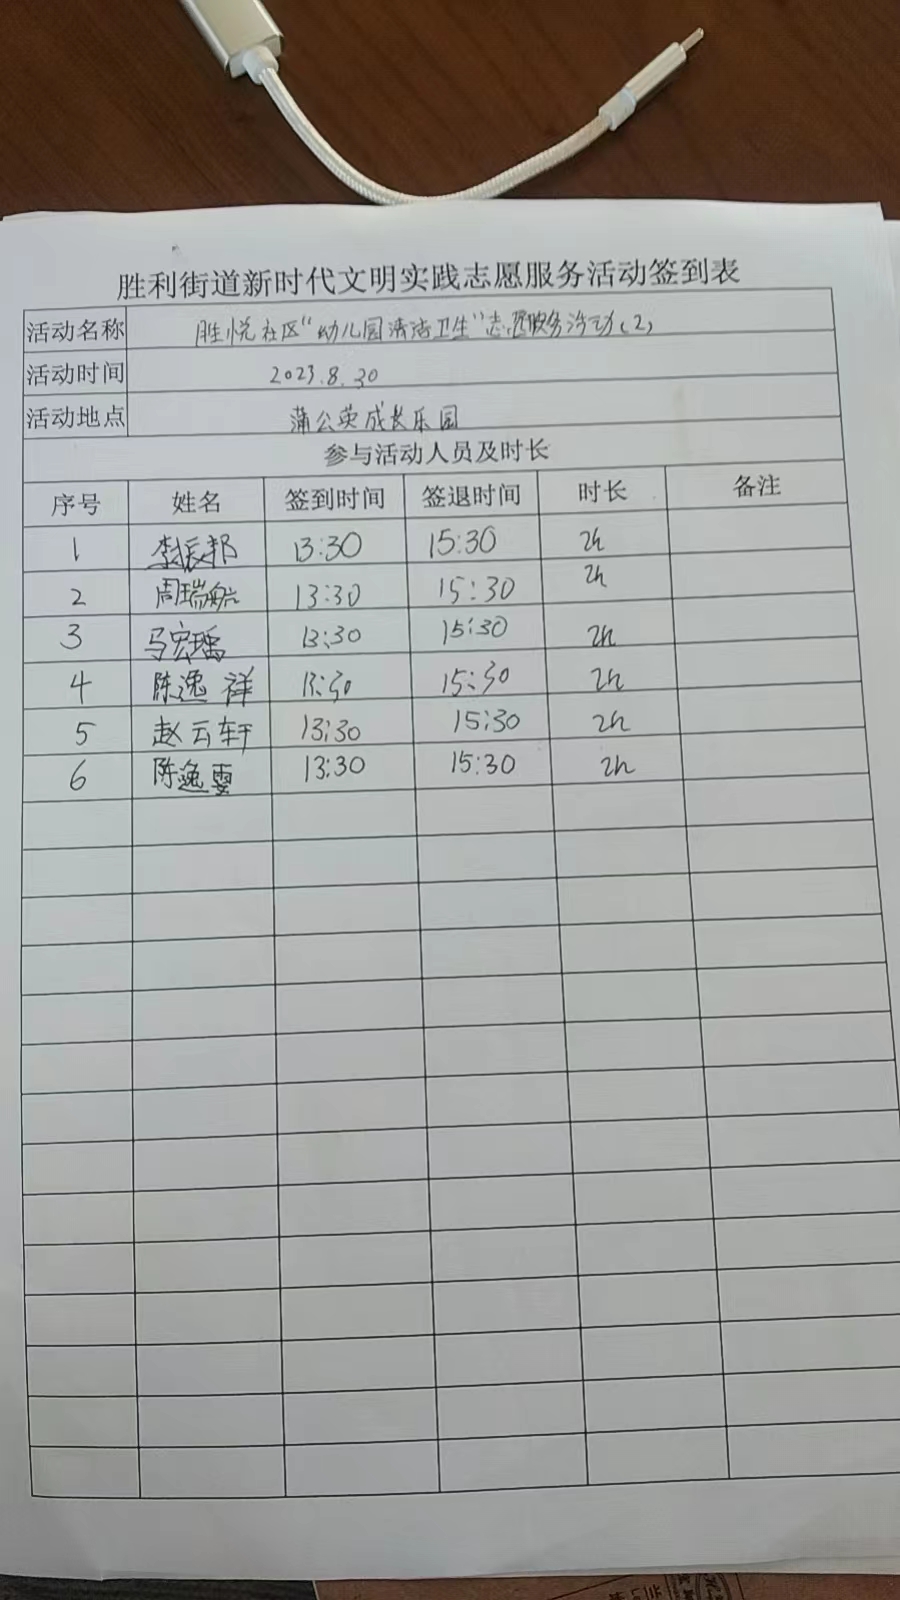 胜利街道新时代文明实践志愿服务活动签到表
活动名称 胜悦社区“幼儿园清洁卫生”志愿服务活动(2)
活动时间 2023.8.30
活动地点 蒲公英成长乐园
参与活动人员及时长
序号 姓名 签到时间 签退时间 时长 备注
1 李振邦 13:30 15:30 2h
2 周瑞航 13:30 15:30 2h
3 马宏瑶 13:30 15:30 2h
4 陈逸祥 13:30 15:30 2h
5 赵云轩 13:30 15:30 2h
6 陈逸雯 13:30 15:30 2h